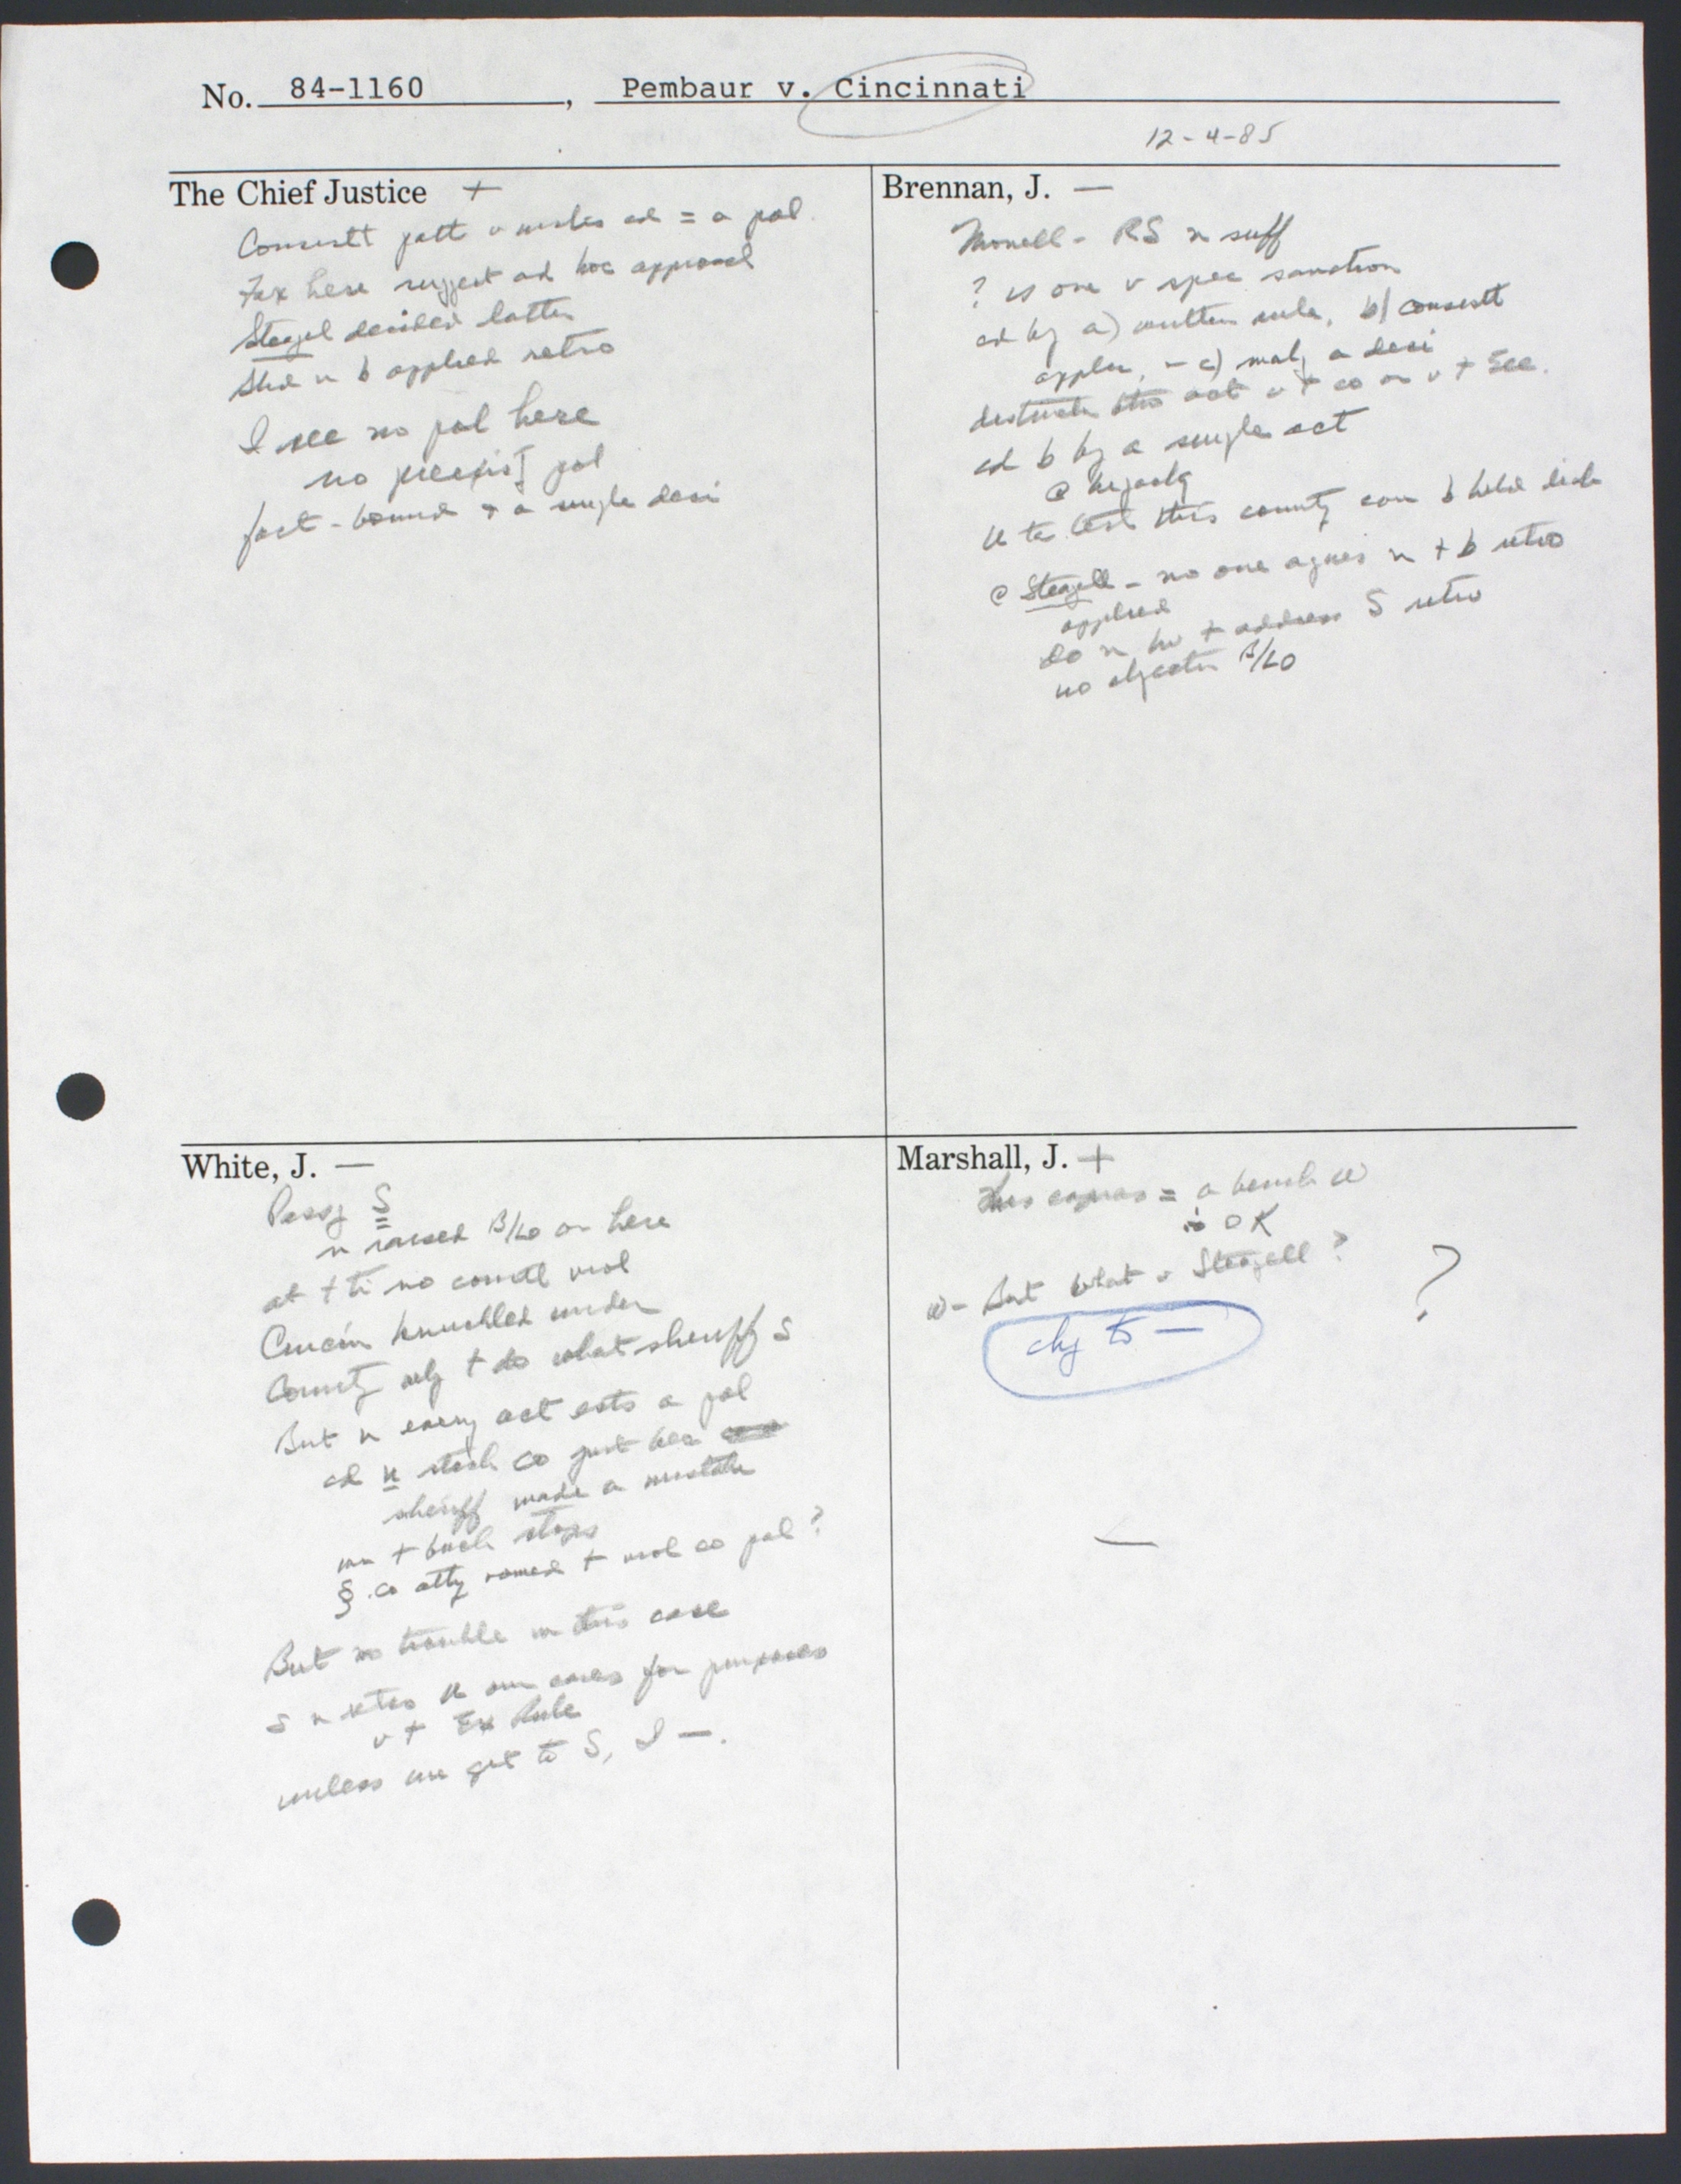 No. 84-1160, Pembaur v. Cincinnati
12-4-85
The Chief Justice +
Consistt patt = a pol.
Fax here suggest ad hoc approval
Steagel decided latter
Shd n b applied retro
I see no pol here
no preexistg pol
fact-bound & a single desi
Brennan, J. —
Monell - RS n suff
? is one v spec sanction
cd by a) written rule, b) consistt
applen, c) makg a desi
cd b by a single act
U ts test this county can b held liab
@ Steagall - no one agues n t b retro
applied
Do n hv t address S retro
no objectn B/Lo
White, J. —
Passg S
n raised B/Lo or here
at t ti no constl viol
Cincin knuckled under
County rely t do what sheriff s
But n every act ests a pol
cd n stick co just bec
sheriff made a mistake
wn t buck stops
§. co atty vomed t viol co pol?
But no trouble in this case
S n retro U our cases for purposes
v t Ex Rule
unless we get to S, I —.
Marshall, J. +
This capias = a bench w
is OK
W- But what v Steagall?
?
chg to —
—